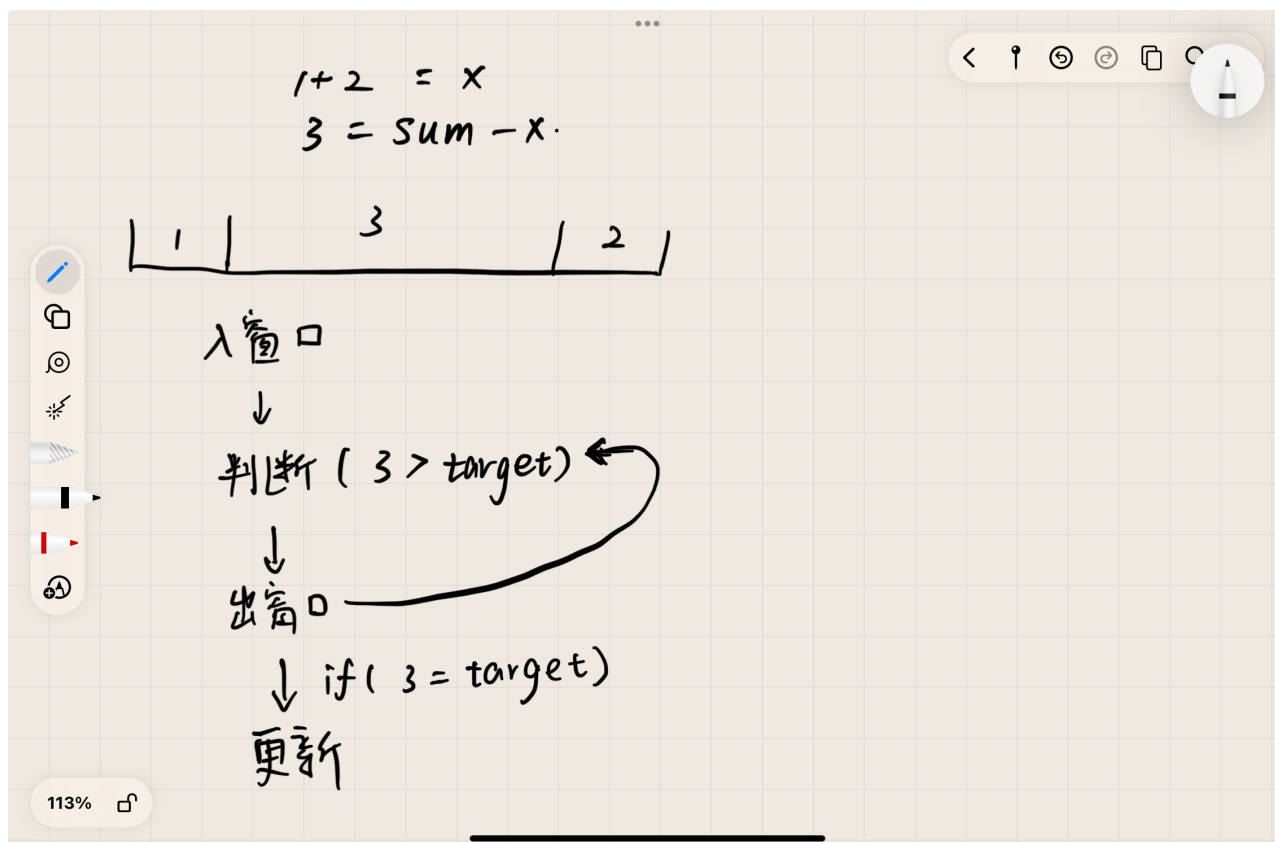 1+2 = x
3 = sum - x.
1 3 2
入窗口
↓
判断(3 > target)
↓
出窗口
↓ if(3 = target)
更新
113%